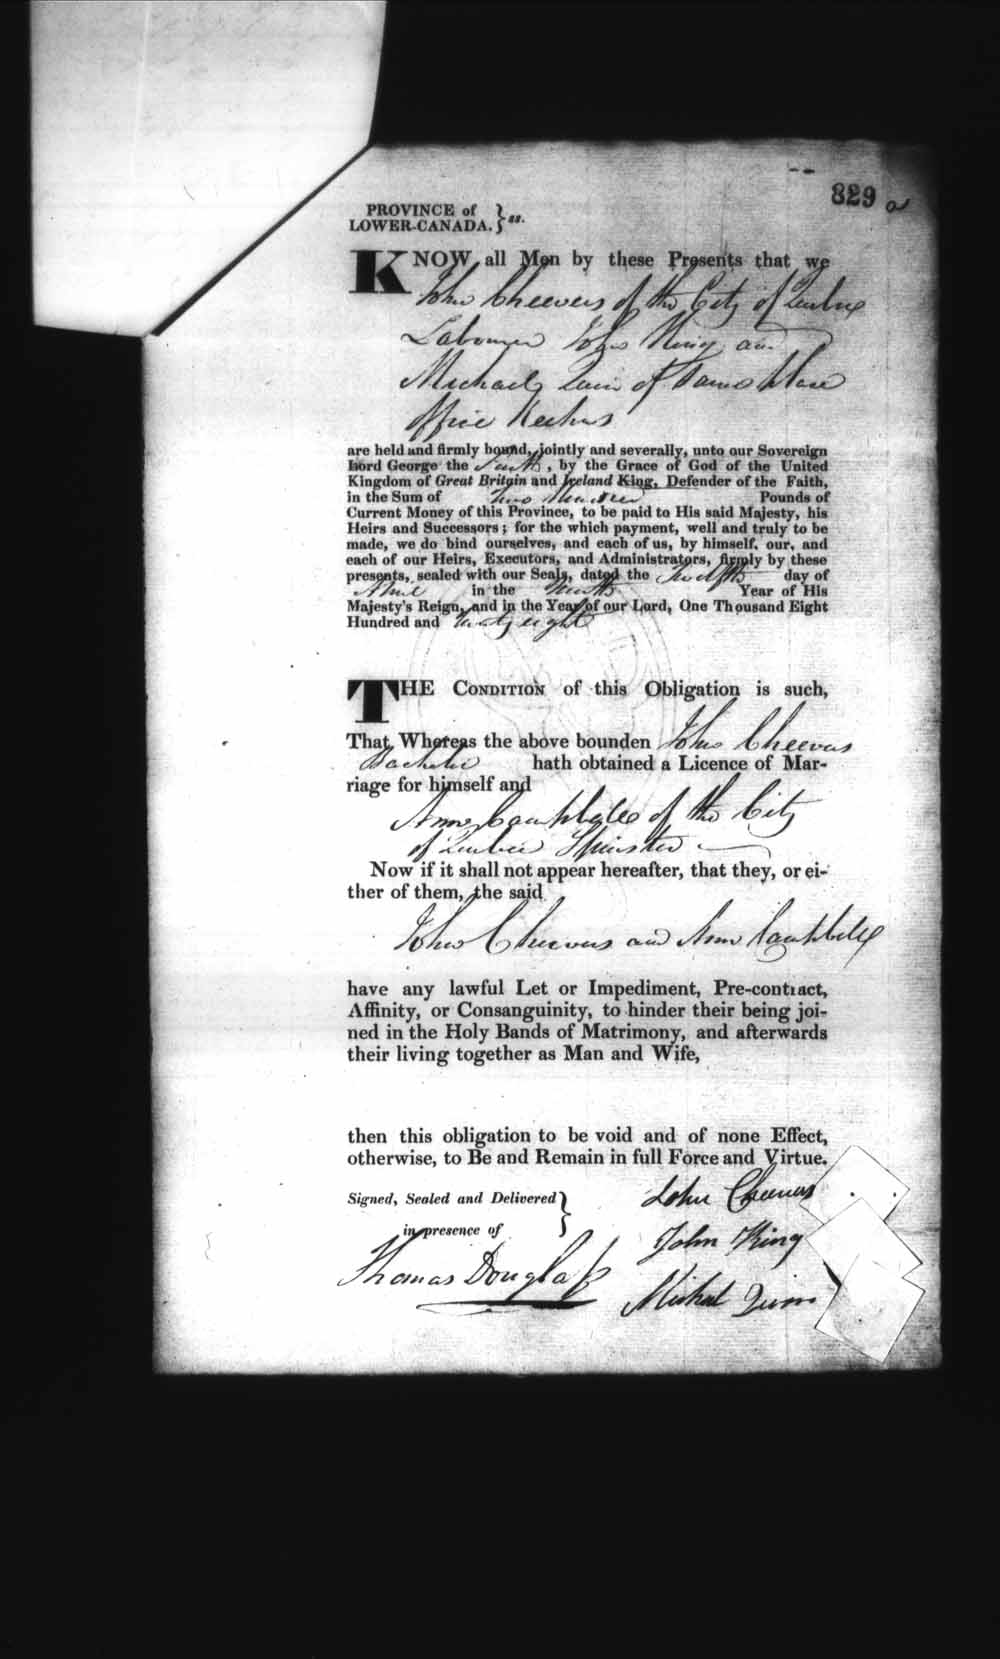 829 a
PROVINCE of
LOWER-CANADA. } ss.
KNOW all Men by these Presents that we
John Cheevers of the City of Quebec
Labourer John King and
Michael Quin of same place
office Keepers
are held and firmly bound, jointly and severally, unto our Sovereign
Lord George the Fourth, by the Grace of God of the United
Kingdom of Great Britain and Ireland King, Defender of the Faith,
in the Sum of Two Hundred Pounds of
Current Money of this Province, to be paid to His said Majesty, his
Heirs and Successors; for the which payment, well and truly to be
made, we do bind ourselves, and each of us, by himself, our, and
each of our Heirs, Executors, and Administrators, firmly by these
presents, sealed with our Seals, dated the Twelfth day of
April in the Ninth Year of His
Majesty's Reign, and in the Year of our Lord, One Thousand Eight
Hundred and Twenty eight
THE CONDITION of this Obligation is such,
That Whereas the above bounden John Cheevers
Bachelor hath obtained a Licence of Mar-
riage for himself and
Ann Campbell of the City
of Quebec Spinster
Now if it shall not appear hereafter, that they, or ei-
ther of them, the said
John Cheevers and Ann Campbell
have any lawful Let or Impediment, Pre-contract,
Affinity, or Consanguinity, to hinder their being joi-
ned in the Holy Bands of Matrimony, and afterwards
their living together as Man and Wife,
then this obligation to be void and of none Effect,
otherwise, to Be and Remain in full Force and Virtue.
Signed, Sealed and Delivered }
in presence of
John Cheevers
John King
Thomas Douglass
Michal Quinn